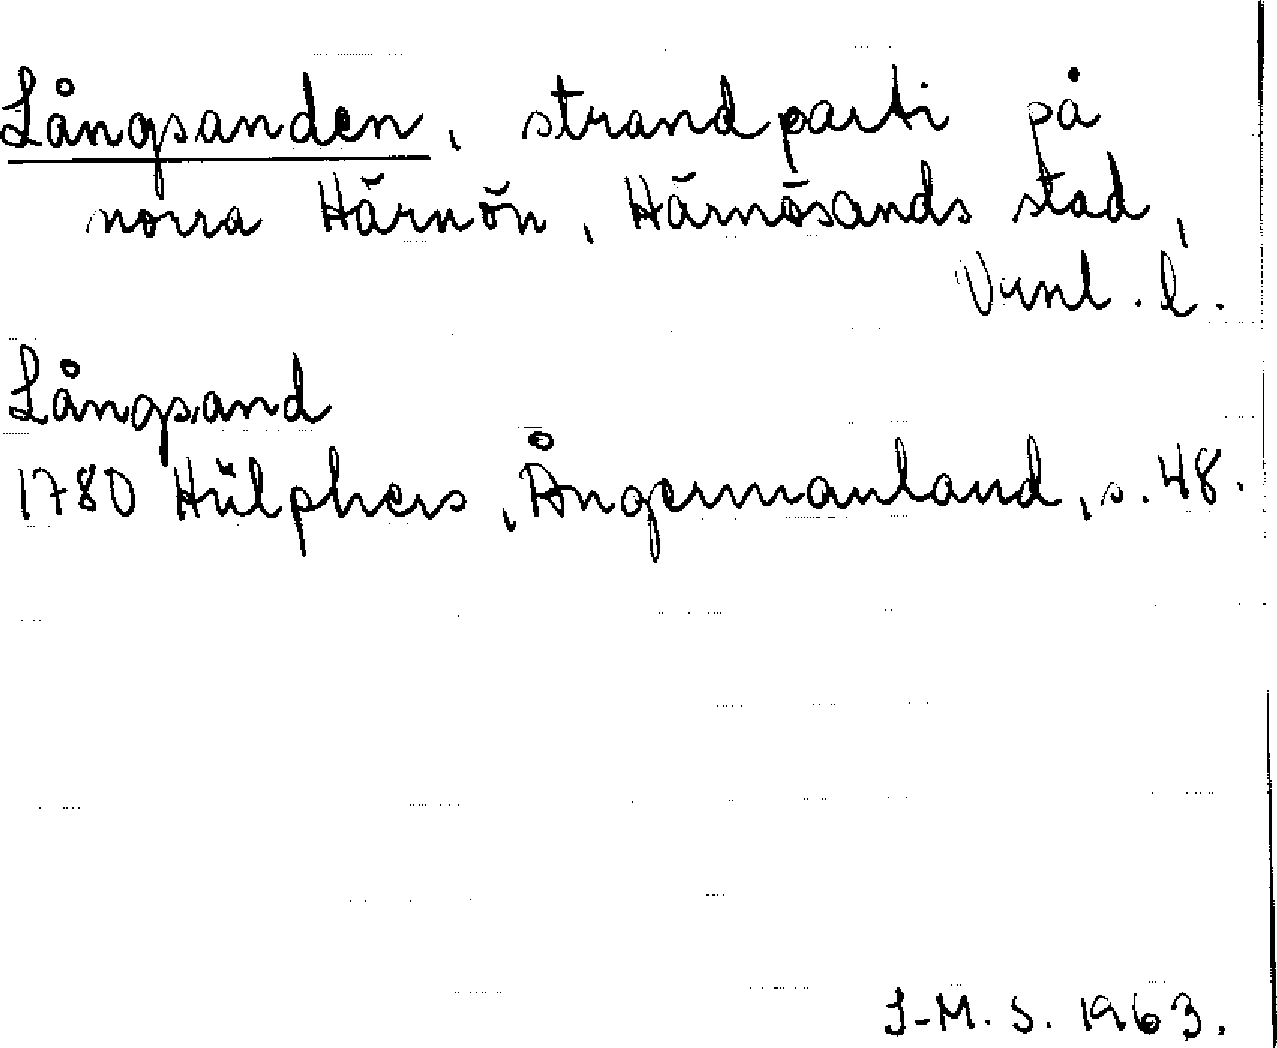 Långsanden, strandparti på
norra Härnön, Härnösands stad,
Vnl. l.
Långsand
1780 Hülphers, Ångermanland, s. 48.
I-M. S. 1963.